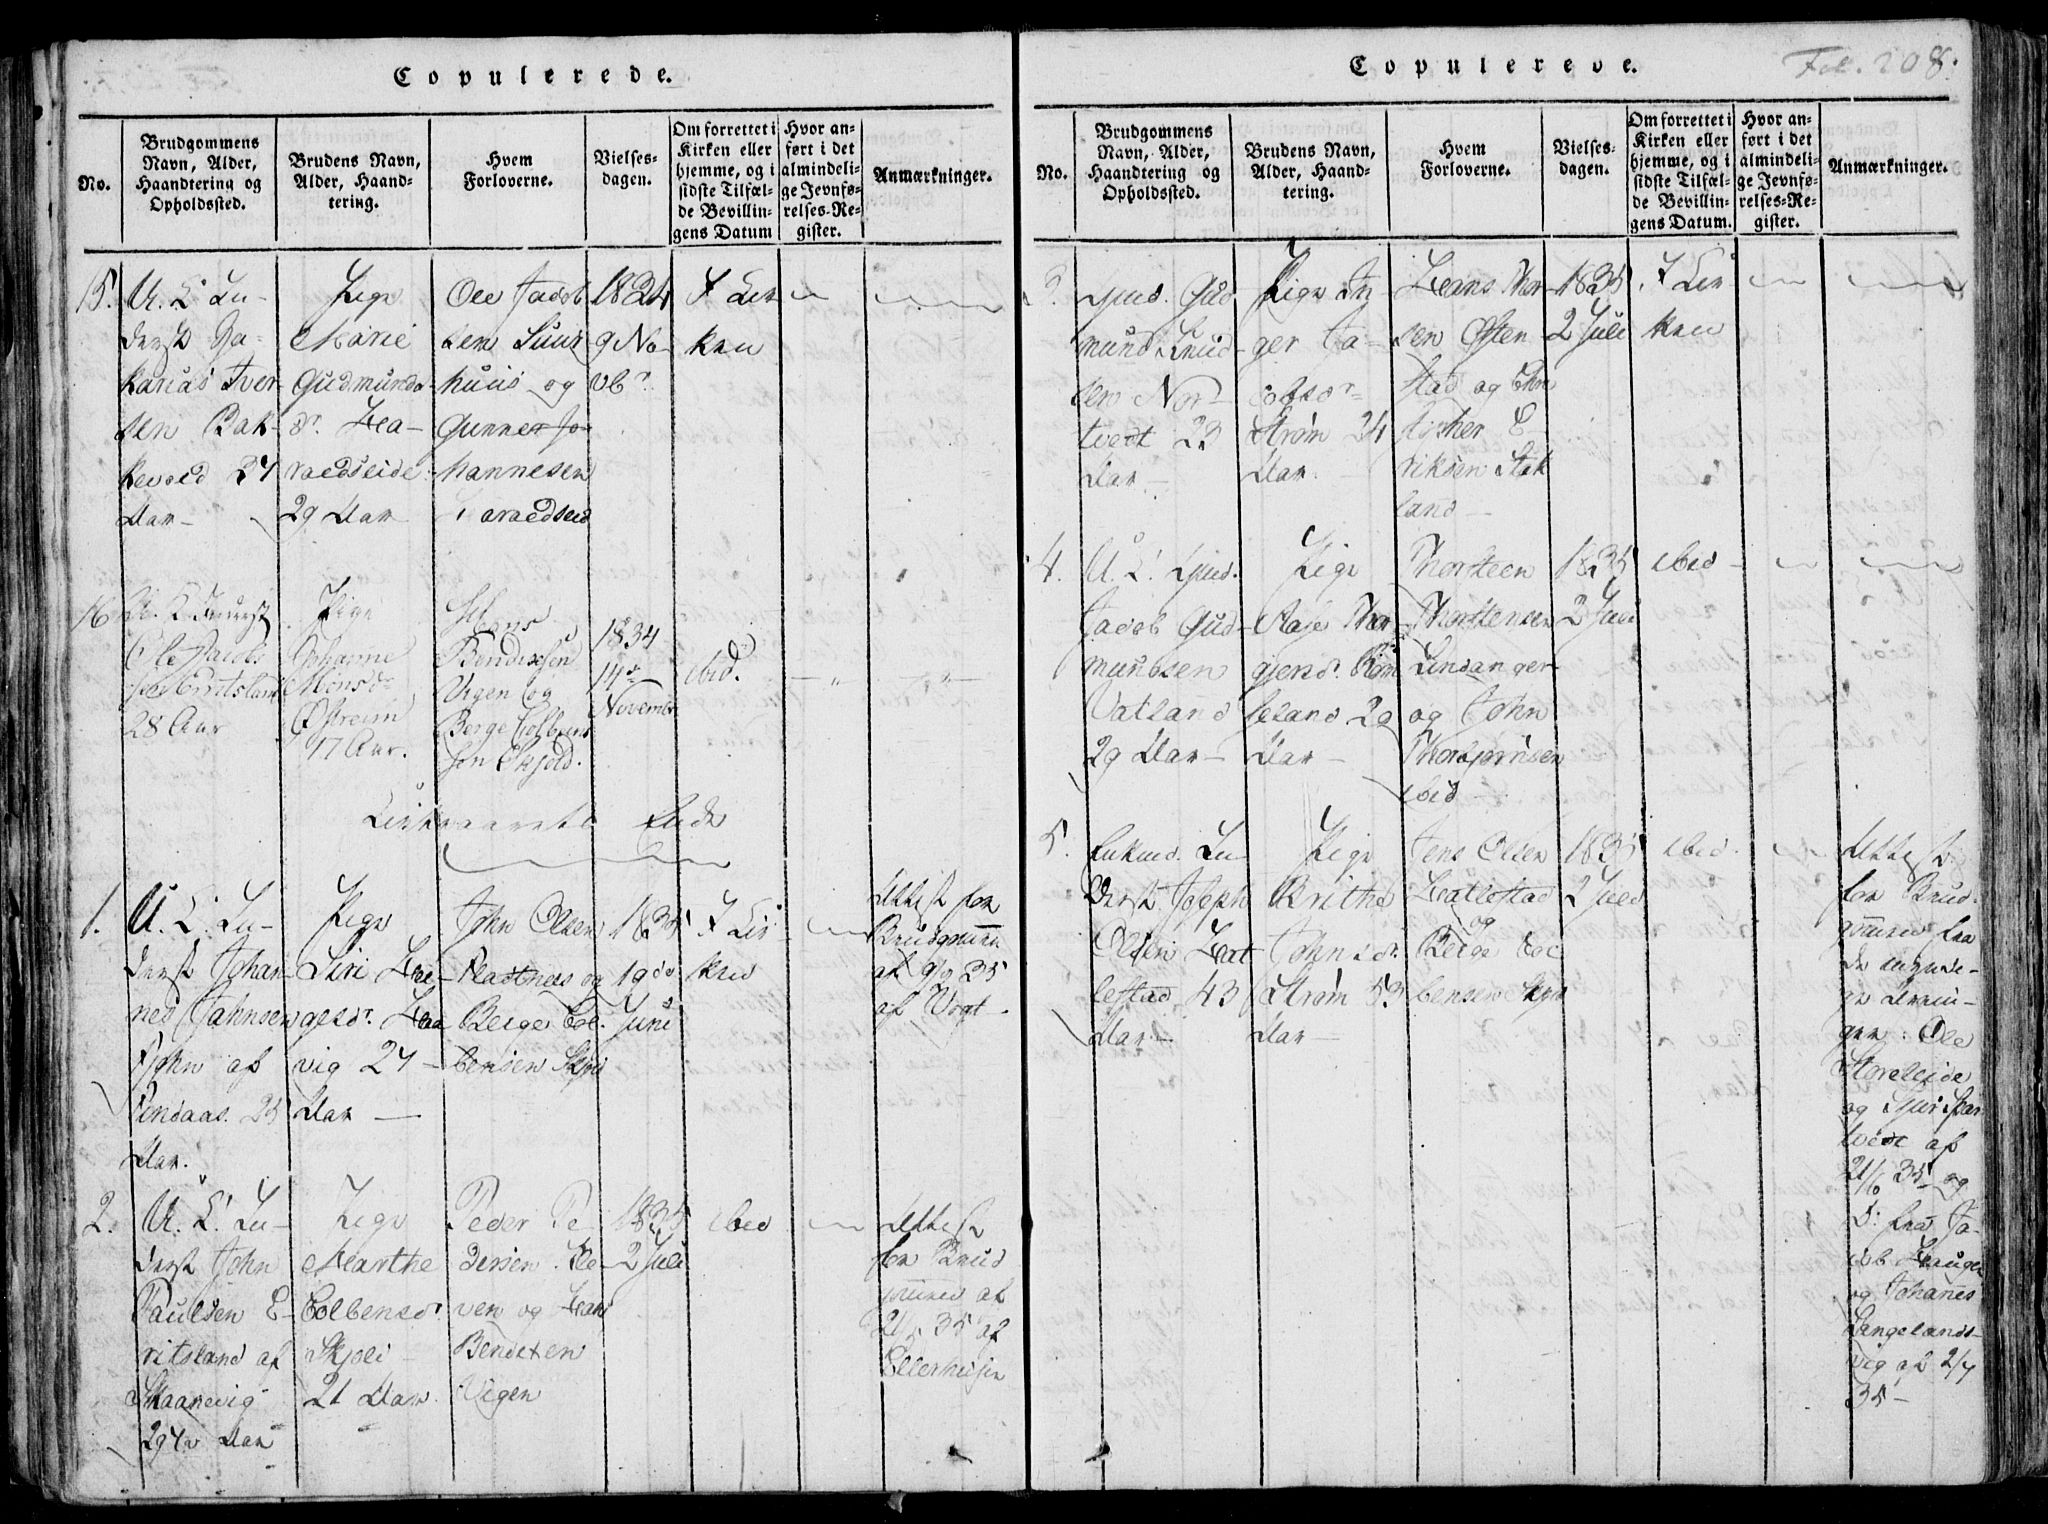 Copulerede.
No.
Brudgommens
Navn, Alder,
Haandtering og
Opholdssted.
Brudens Navn,
Alder, Haand-
tering.
Hvem
Forloverne.
Vielses-
dagen.
Om forrettet i
Kirken eller
hjemme, og i
sidste Tilfæl-
de Bevillin-
gens Datum
Hvor an-
ført i det
almindeli-
ge Jevnfø-
relses-Re-
gister.
Anmærkninger.
15.
U. C. Lu-
derst Za-
karias Iver-
sen Bak-
kevold 27
Aar
Pige
Marie
Gudmunds-
dr. Ha-
raldseide
29 Aar
Ole Jacob
sen Suur
huus og
Gunner Jo-
hannesen
Haraldseid
1834
9 No-
vbr.
I Kir
ken
16
Ole Jacob
28 Aar
Pige
Johanne
Monsdr
Østreim
17 Aar.
Mons
Bendixsen
Vigen og
Berge Colbens
søn Skjold.
1834
14de
November
ibid.
Kirkeaarets Ende
1.
U. C. Lu-
derst Johan-
nes Jahnsen
af
25
Aar.
Pige
Siri Hel-
gesdr.
vig 27
Aar
John Olsen
og
Berge Col-
bensen Skjol
1835
19de
Juni
I Kir
ken
Attest for
Brudgommen
af
af Vogt
2.
U. C. Lu-
derst John
Paulsen E-
ritsland af
Skaanevig
Aar
Pige
Marthe
Colbensdr
Skjold
21 Aar
Peder Pe
dersen
og
Bendixen
Vigen
1835
2 Juli
ibid
Attest
for Brud
gommen af
21/5 35 af
Ellerhusen
Copulerede.
Fol. 208.
No.
Brudgommens
Navn, Alder,
Haandtering og
Opholdssted.
Brudens Navn,
Alder, Haand-
tering.
Hvem
Forloverne.
Vielses-
dagen.
Om forrettet i
Kirken eller
hjemme, og i
sidste Tilfæl-
de Bevillin-
gens Datum.
Hvor an-
ført i det
almindeli-
ge Jevnfø-
relses-Re-
gister.
Anmærkninger.
3.
Gud
mund Knud-
sen Nor-
tvedt 23
Aar
Pige In
ger Ja-
cobsdr
Strøm 24
Aar.
Hans Thor
sen Østen
stad og Chri
stopher E
riksen Stok
land
1835
2 Juli
I Kir
ken
4.
U. C.
Jacob Gud-
mundsen
Vatland
29 Aar
Pige
Aase Thor
29
Aar
Thorsteen
Thorstensen
Lindanger
og John
Thorbjørnsen
ibid
1835
2 Juli
ibid
5.
Enkmd. Lu-
derst Joseph
Olsen Hat
lestad 43
Aar
Pige
Brithe
Johnsdr.
Strøm 53
Aar
Jens Olsen
Hatlestad
og
Berge Col
bensen Skjol
1835
2 Juli
ibid
Attest
for Brud
gommen fra
Ole
Storeleide
og
tvedt af
21/6 35 og
fra Ja-
cob Hauge
og Johanes
Langelands-
vig af 2/7
35